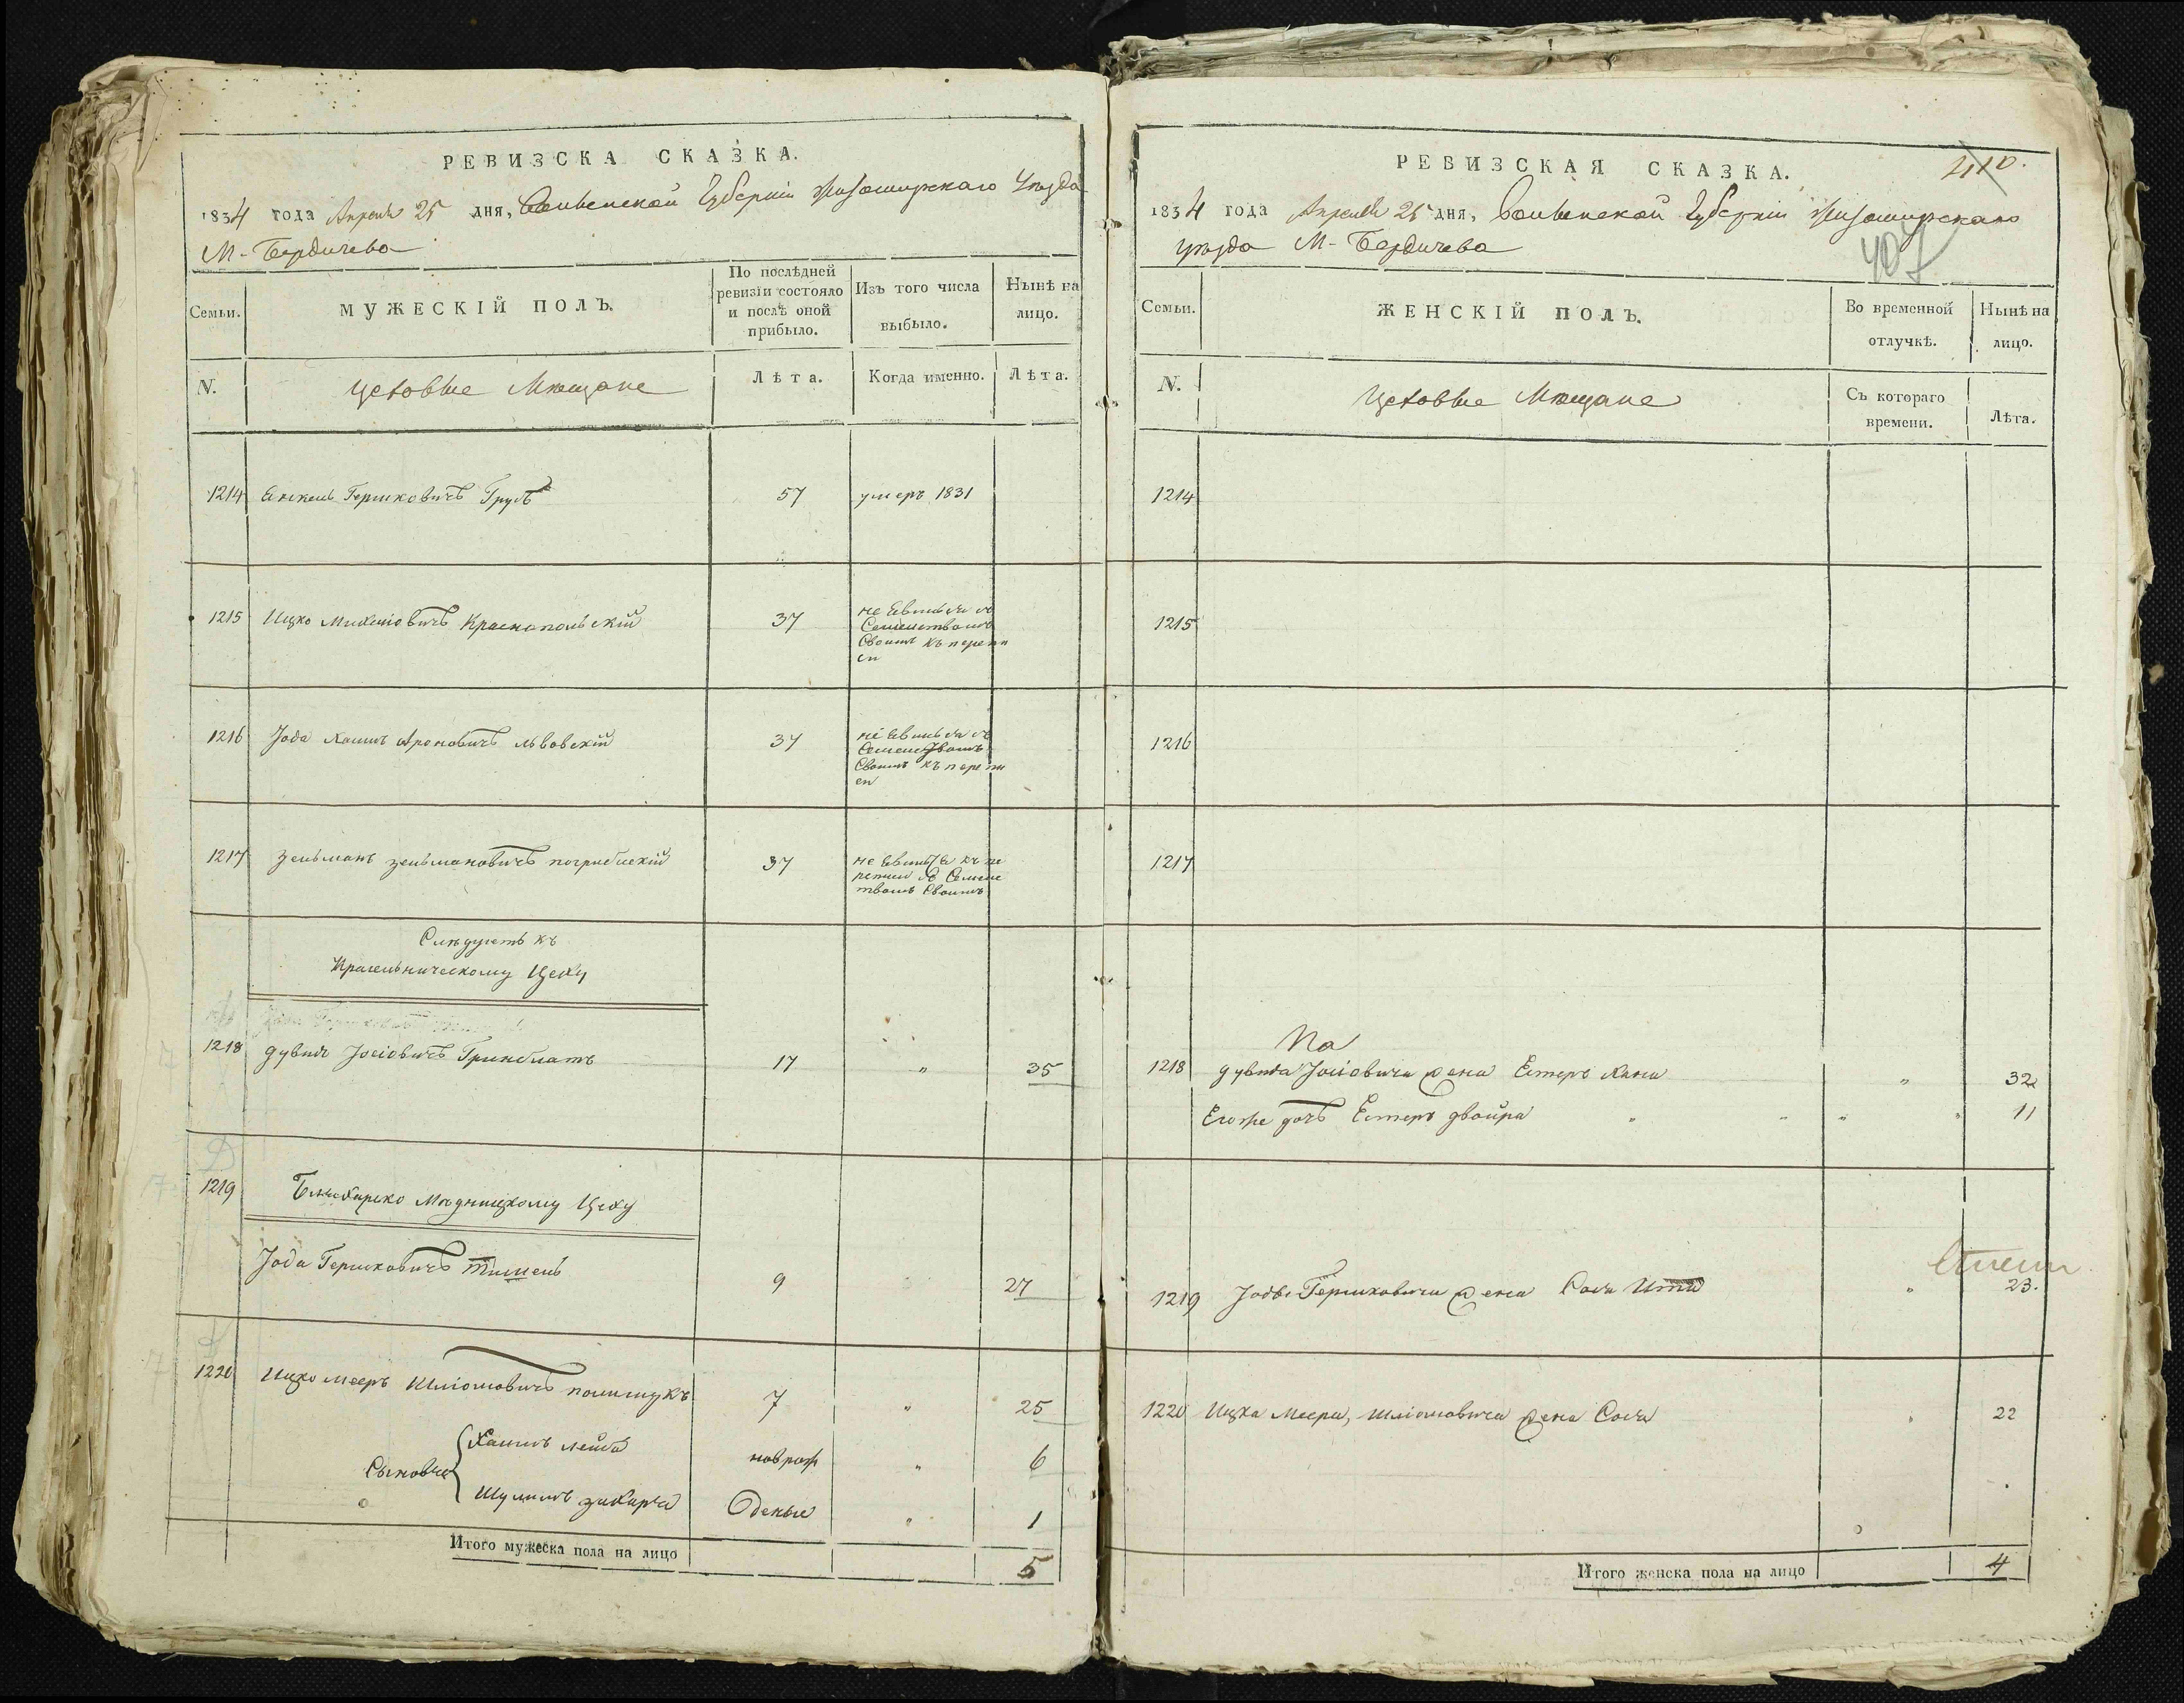 РЕВИЗСКА СКАЗКА.
1834 года Апреля 25 дня, Волынской Губерніи Житомирскаго Уѣзда
М- Бердичева
Семьи.
МУЖЕСКІЙ ПОЛЪ.
По послѣдней ревизіи состояло и послѣ оной прибыло.
Изъ того числа выбыло.
Нынѣ на лицо.
N.
Цеховые Мѣщане
Лѣта.
Когда именно.
Лѣта.
1214 Янкель Гершковичъ Грубъ 57 умеръ 1831
1215 Ицко Михелiовичъ Краснопольскій 37 не Евился съ
Семействомъ
Своимъ къ перепи
си
1216 Јода Хаимъ Ароновичъ львовскій 37 не Евился съ
Семействомъ
Своимъ къ перепи
си
1217 Зельманъ Зельмановичъ погребискій 37 не Евился къ пе
реписи съ Семейс
твомъ Своимъ
Слѣдуетъ къ
Цеху
1218 дувидъ Јосіовичъ Гринблатъ 17 " 35
1219 Мѣдницкому Цеху
Јода Гершковичъ 9 27
1220 Ицко мееръ Шліомовичъ полищукъ 7 " 25
Сыновья { Хаимъ лейба новрож " 6
Шулимъ захарья Оденые " 1
Итого мужеска пола на лицо 5
РЕВИЗСКАЯ СКАЗКА.
410.
1834 года Апреля 25 дня, Волынской Губерніи Житомирскаго
уѣзда М- Бердичева
407
Семьи.
ЖЕНСКІЙ ПОЛЪ.
Во временной отлучкѣ.
Нынѣ на лицо.
N.
Цеховые Мѣщане
Съ котораго времени.
Лѣта.
1214
1215
1216
1217
1218 дувида Јосіовича жена Естеръ Хана " 32
Егоже дочь Естеръ двойра " " " " 11
1219 Јоды Гершковича жена Сося Ита " 23.
1220 Ицка Меера, Шліомовича жена Сося " 22
Итого женска пола на лицо 4